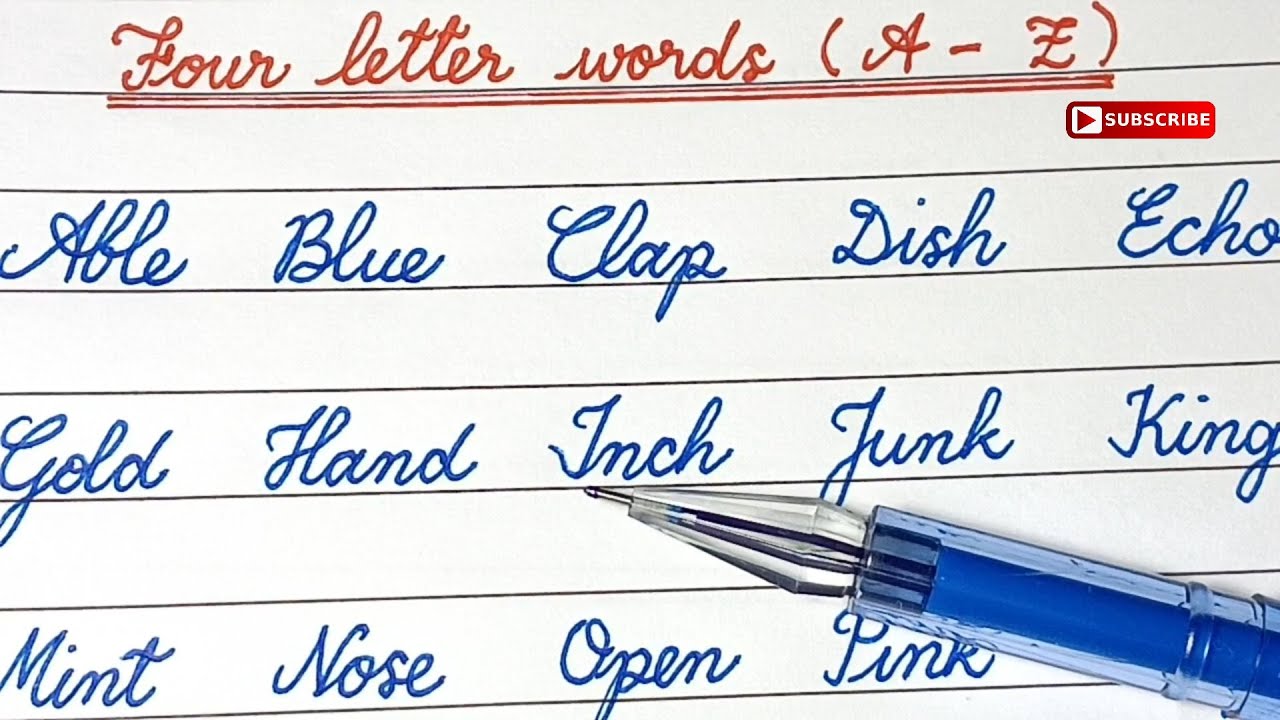 Four letter words (A - Z)
SUBSCRIBE
Able Blue Clap Dish Echo
Gold Hand Inch Junk King
Mint Nose Open Pink